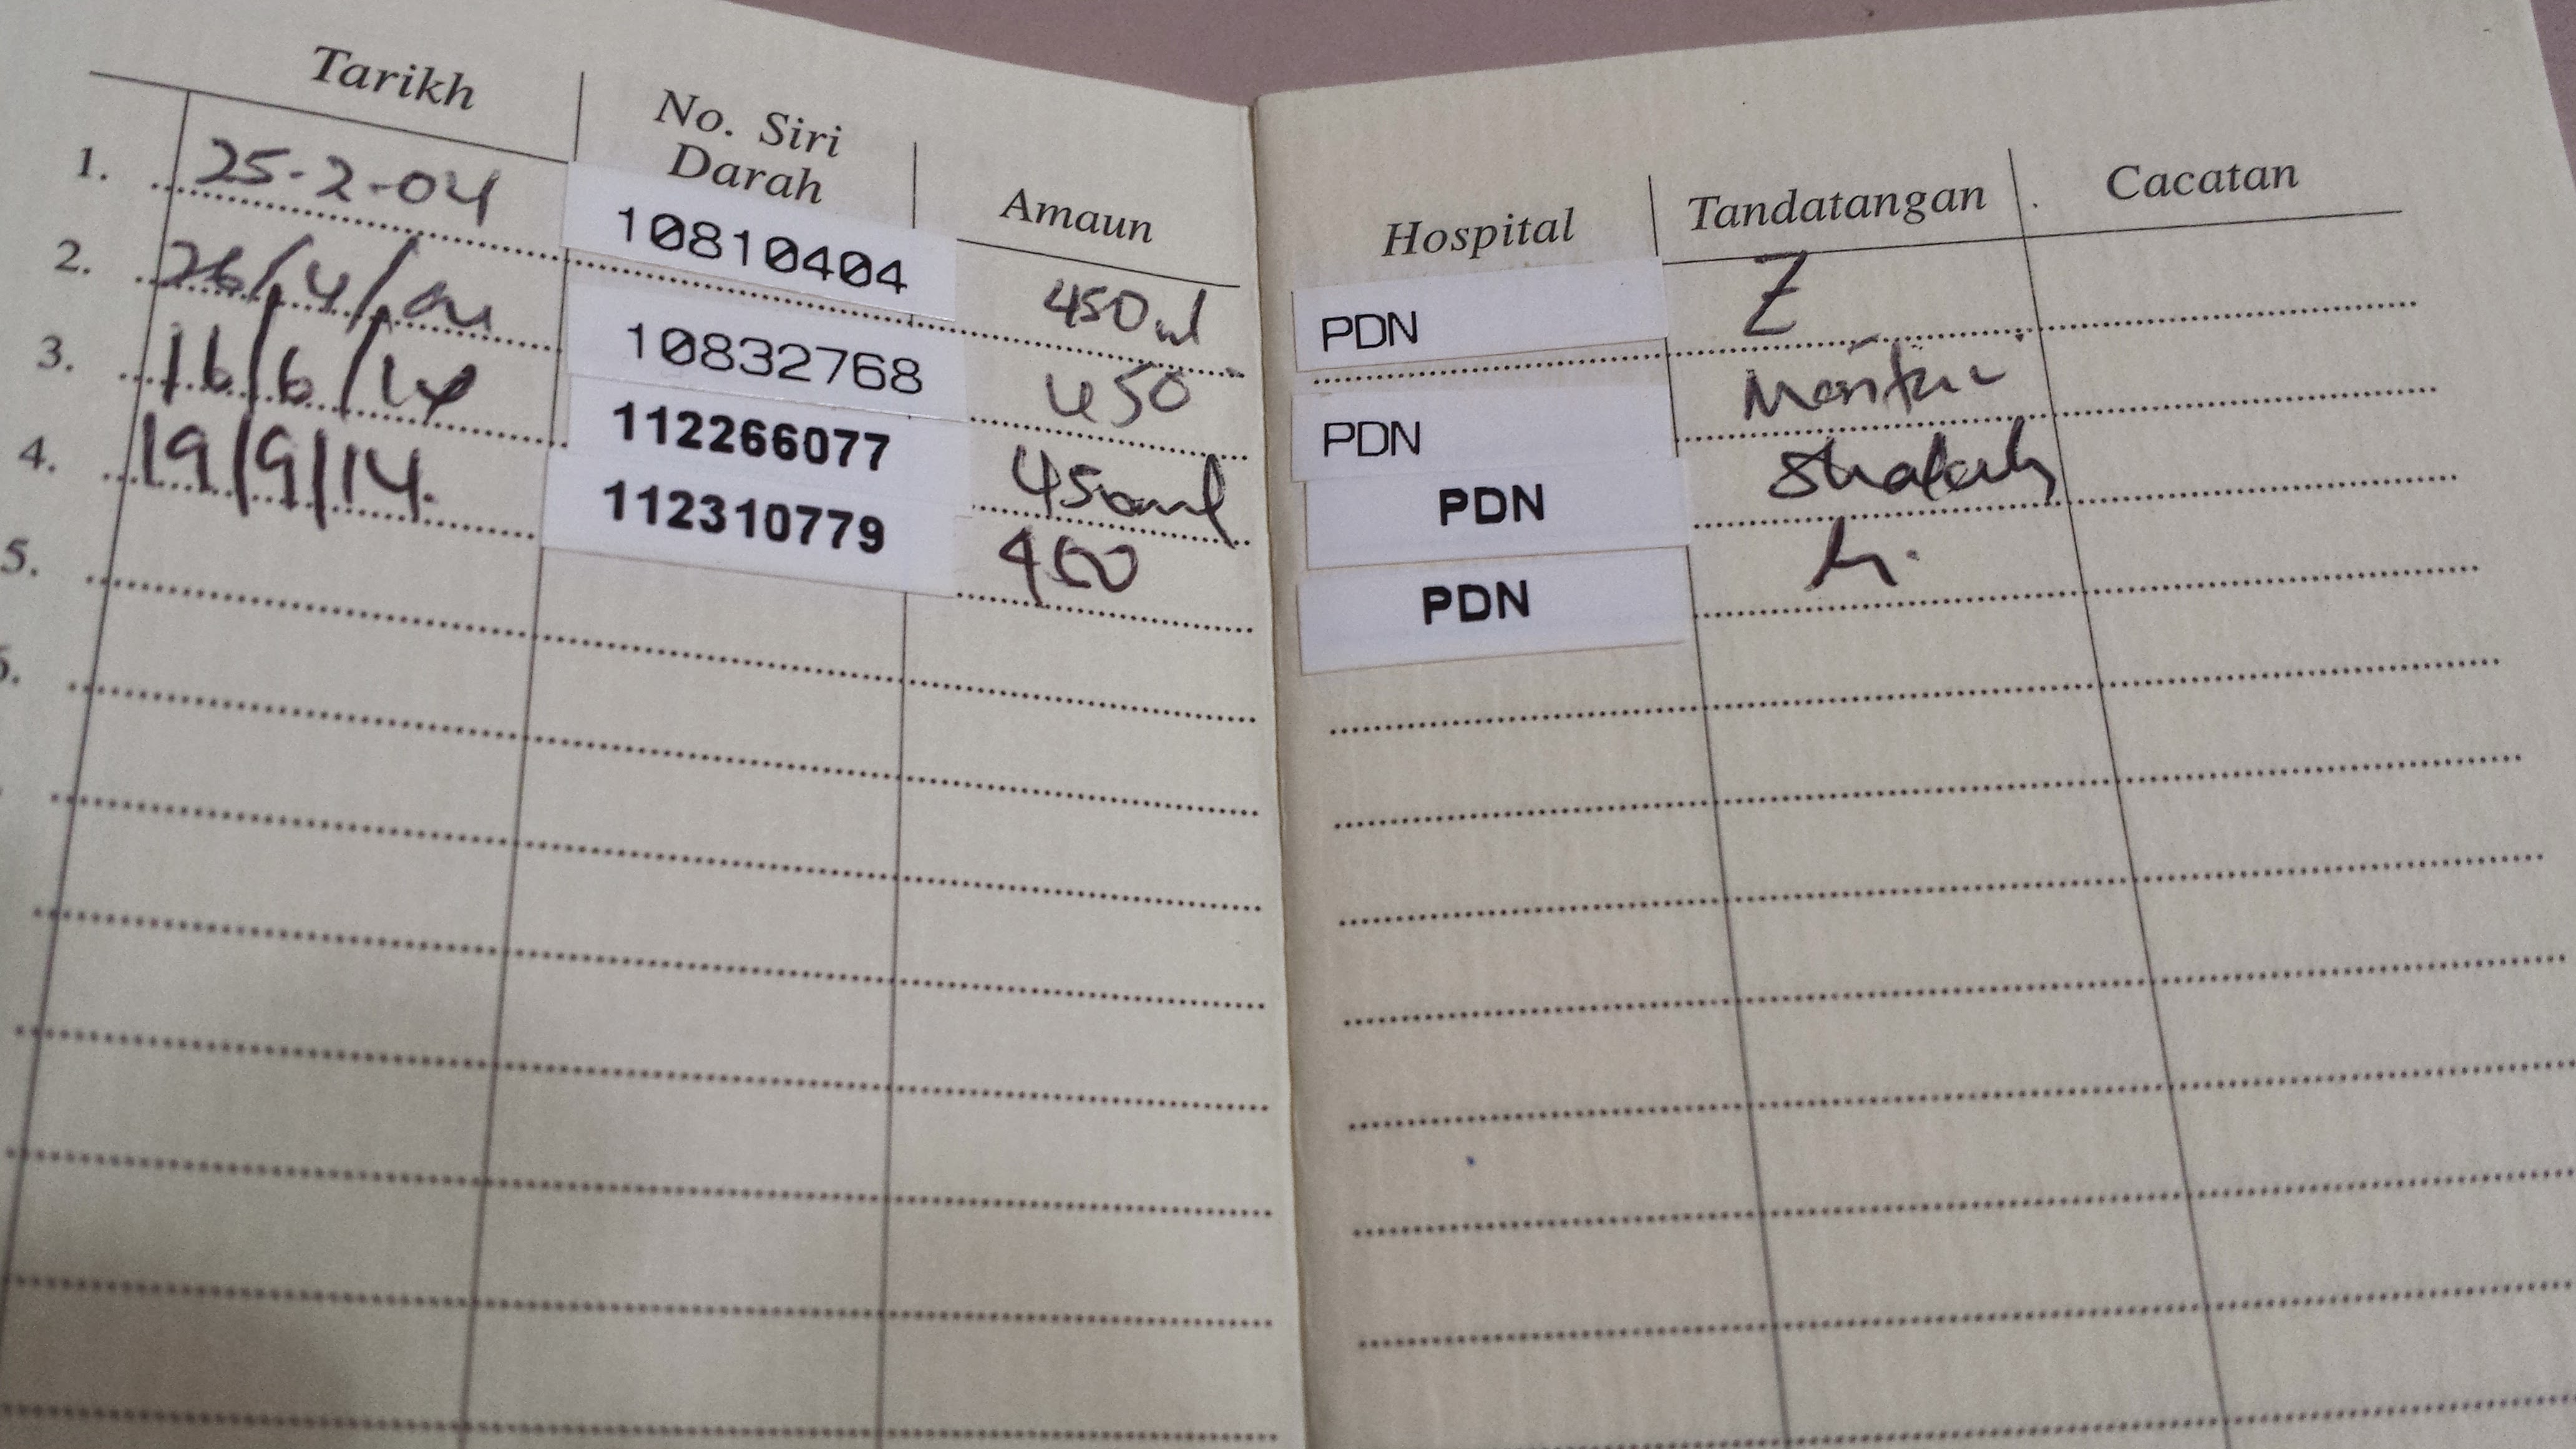 Tarikh No. Siri Darah Amaun Hospital Tandatangan Cacatan
1. 25-2-04 10810404 450ml PDN Z
2. 26/4/04 10832768 450 PDN
3. 16/6/14 112266077 450ml PDN
4. 19/9/14. 112310779 PDN
5.